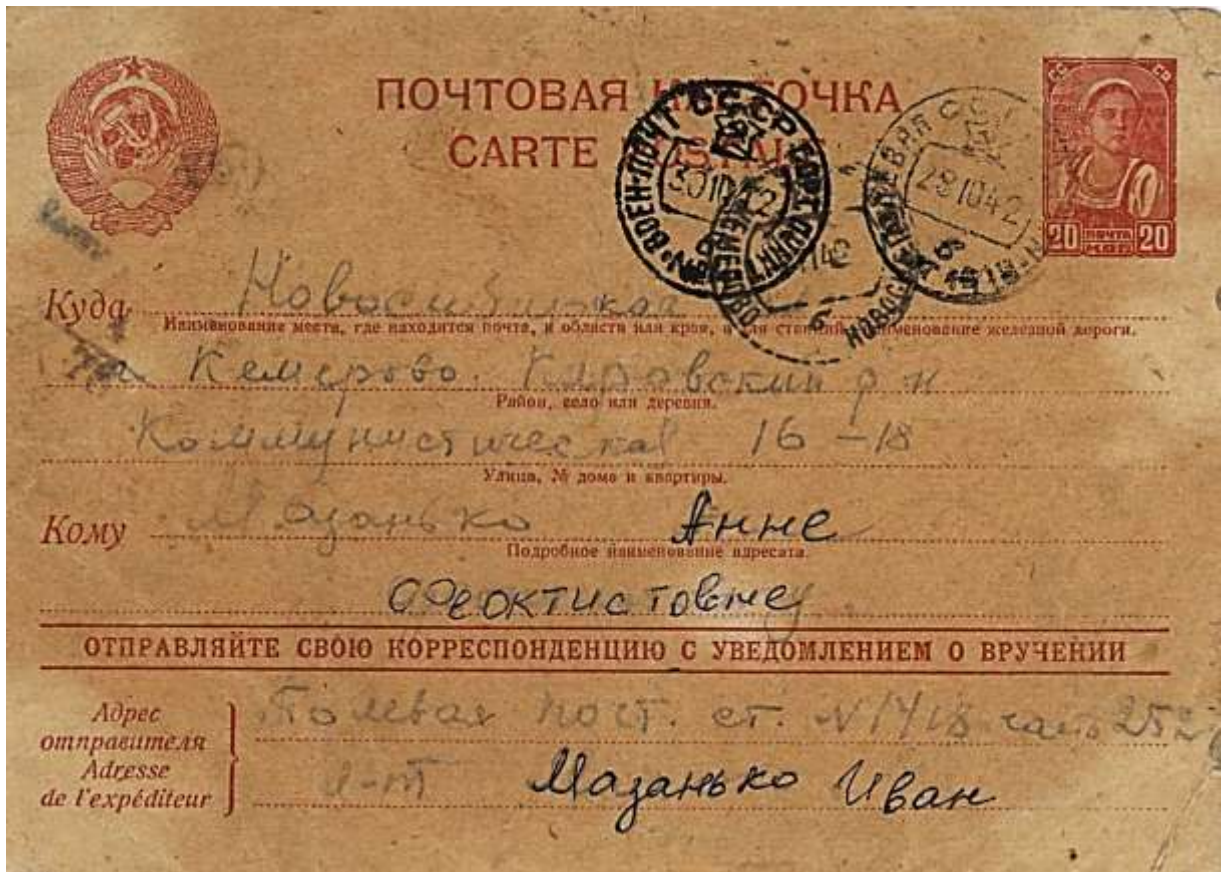 ПОЧТОВАЯ КАРТОЧКА
CARTE POSTALE
СС СР
20 ПОЧТА КОП 20
ВОЕН-ПОЧТ СССР СОРТ.ПУНКТ
30 10 42
28 10 42
КЕМЕРОВО НОВОСИБ
Куда Новосибирская
Наименование места, где находится почта, и области или края, а для станций наименование железной дороги.
г Кемерово. Кировский р н
Район, село или деревня.
Коммунистическая 16-18
Улица, № дома и квартиры.
Кому Мазанько Анне
Подробное наименование адресата
Феоктистовне
ОТПРАВЛЯЙТЕ СВОЮ КОРРЕСПОНДЕНЦИЮ С УВЕДОМЛЕНИЕМ О ВРУЧЕНИИ
Адрес отправителя
Adresse de l'expéditeur
Полевая почт. ст. часть 252
Мазанько Иван